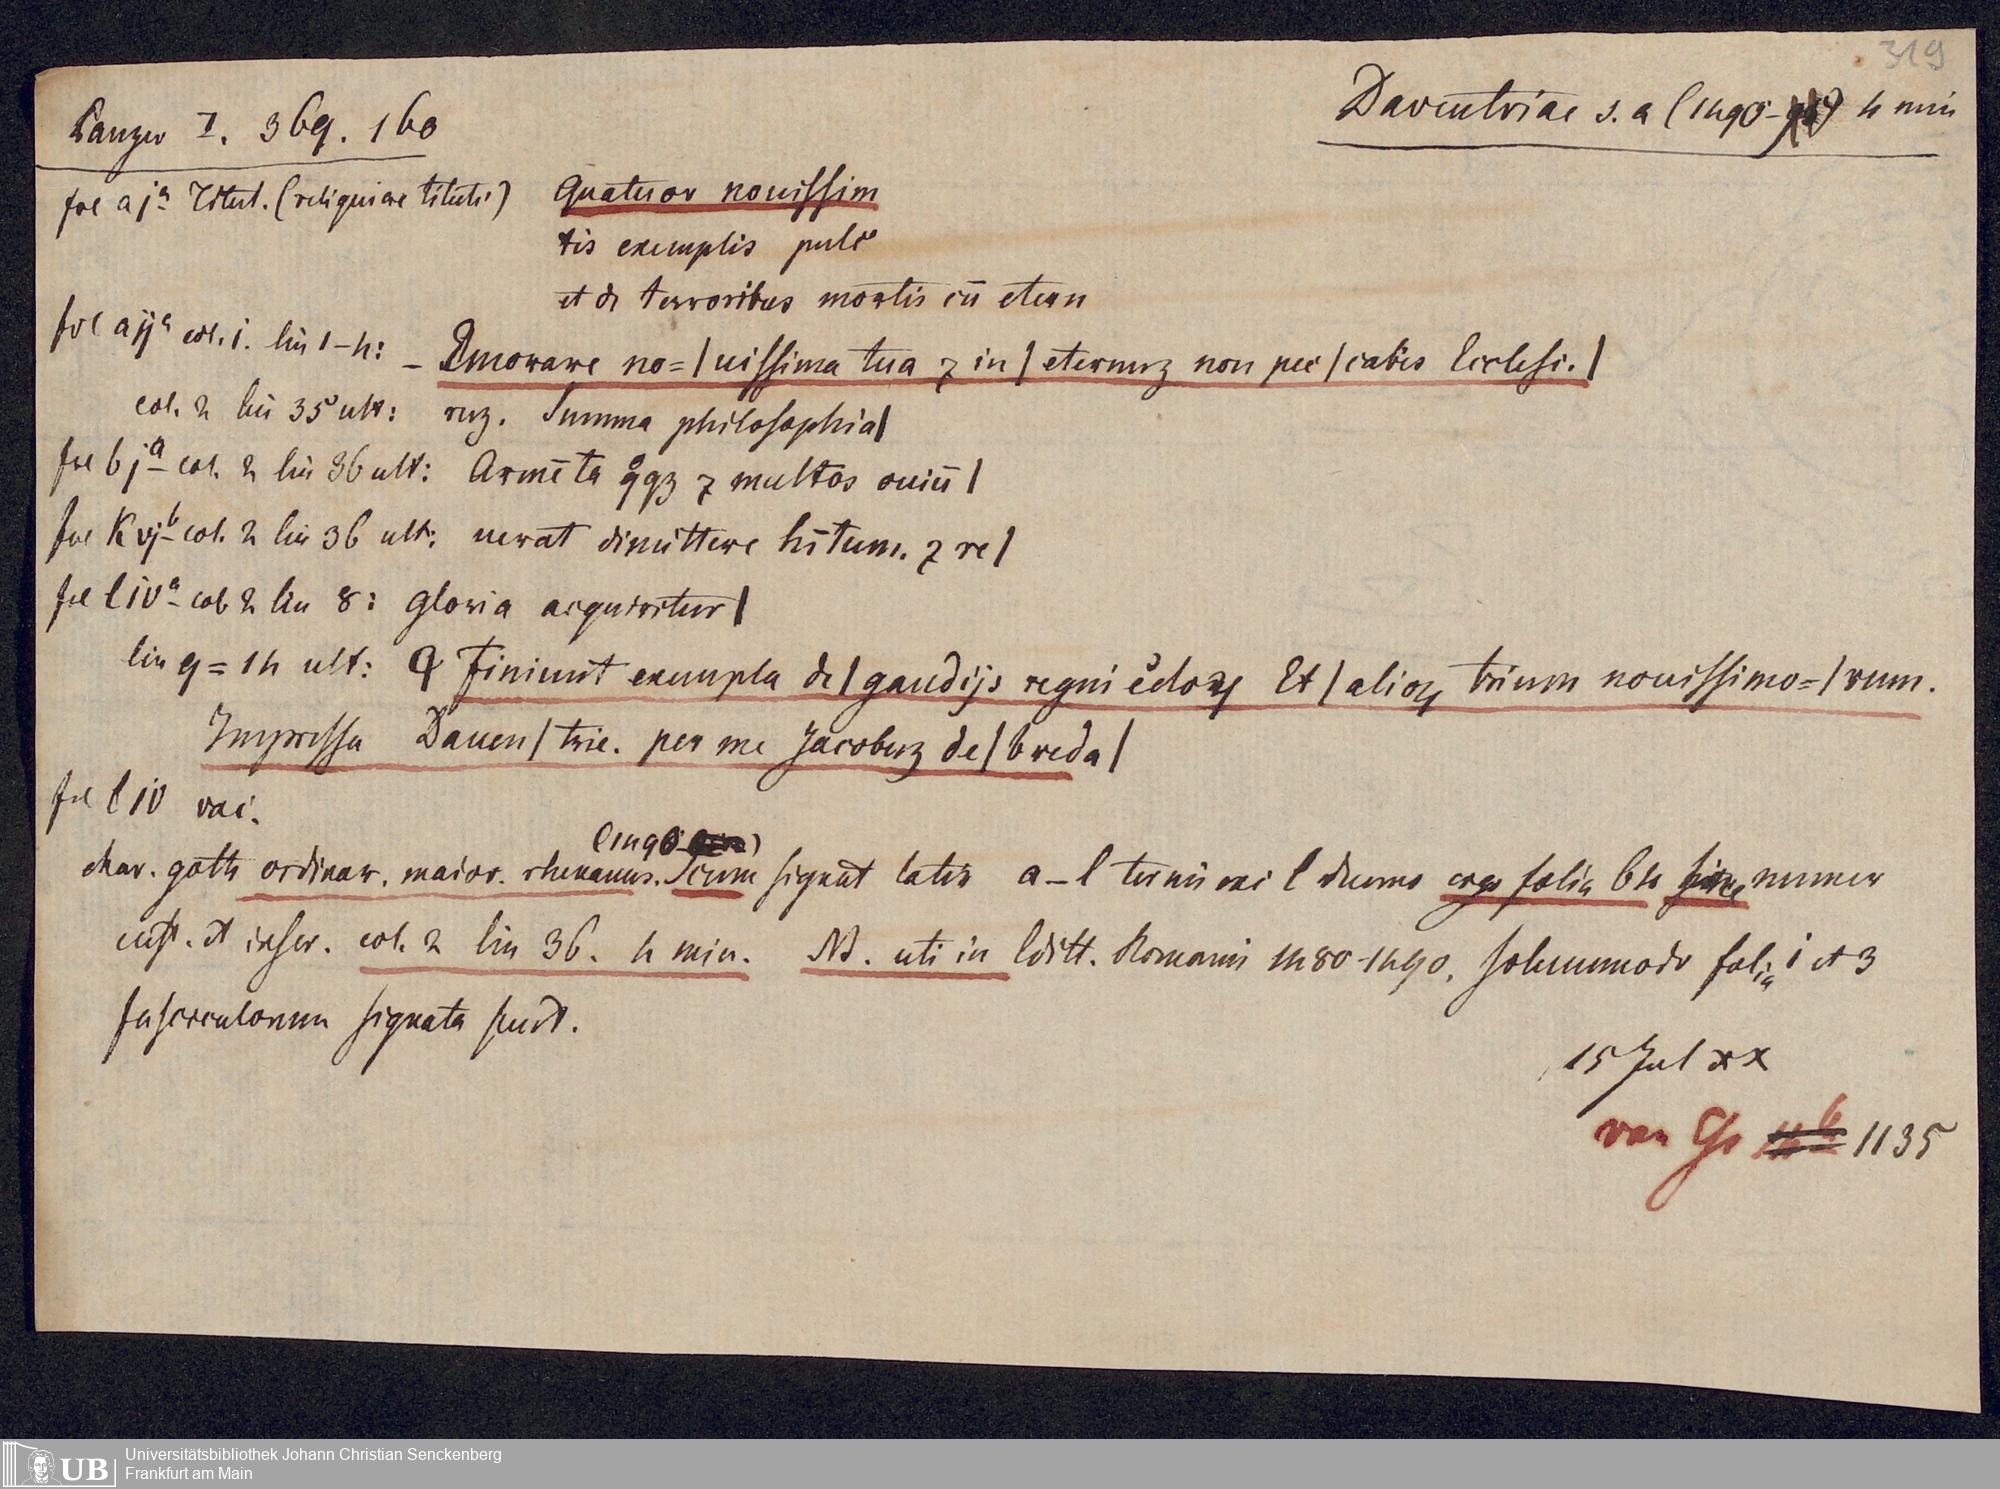 319
Panzer I. 369. 160
Daventriae s. a (1490-) 4 min
fol a jª Titul. (reliquiae tituli) Quatuor nouissim
tis exemplis pulc
et de terroribus mortis cū etern
fol a ijª col. i. lin 1-4: Emorare no=/uissima tua ⁊ in/ eternuꝫ non pec/cabis Ecclesi./
col. 2 lin 35 ult: ruꝫ. Summa philosophia/
fol b jª col. 2 lin 36 ult: Armēta ꝯqꝫ ⁊ multos ouiū/
fol K vjᵇ col. 2 lin 36 ult: uerat dimittere hītum. ⁊ re/
fol l ivª col 2 lin 8: gloria acquiritur/
lin 9=14 ult: ¶ Finiunt exempla de/ gaudijs regni celoꝝ Et/ alioꝝ trium nouissimo=/rum.
Impressa Dauen/trie. per me Jacobuꝫ de/ breda/
fol l iv vac.
(1490)
char. goth ordinar. maior. rhenanus. Scum signat lateris a-l terni l duerno ergo folia 64 sine numer
cust. et inscr. col. 2 lin 36. 4 min. NB. uti in Editt. Romanis 1480-1490, solummodo folia i et 3
fasciculorum signata sunt.
15 Jul xx
van Gs 1135
Universitätsbibliothek Johann Christian Senckenberg
Frankfurt am Main
UB